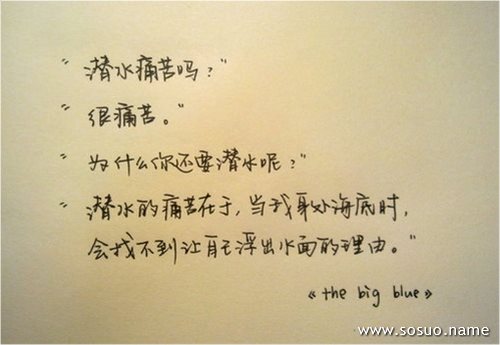 “潜水痛苦吗？”
“很痛苦。”
“为什么你还要潜水呢？”
“潜水的痛苦在于，当我身处海底时，
会找不到让自己浮出水面的理由。”
《the big blue》
www.sosuo.name